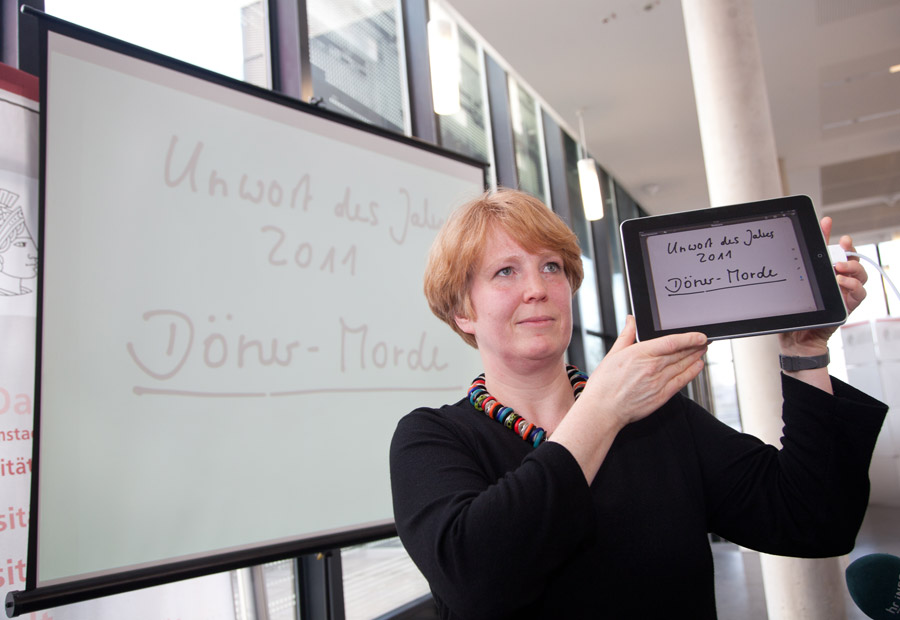 Unwort des Jahres
2011
Döner-Morde
Unwort des Jahres
2011
Döner-Morde
Da
mstad
sität
sit
sit
t
hr iN